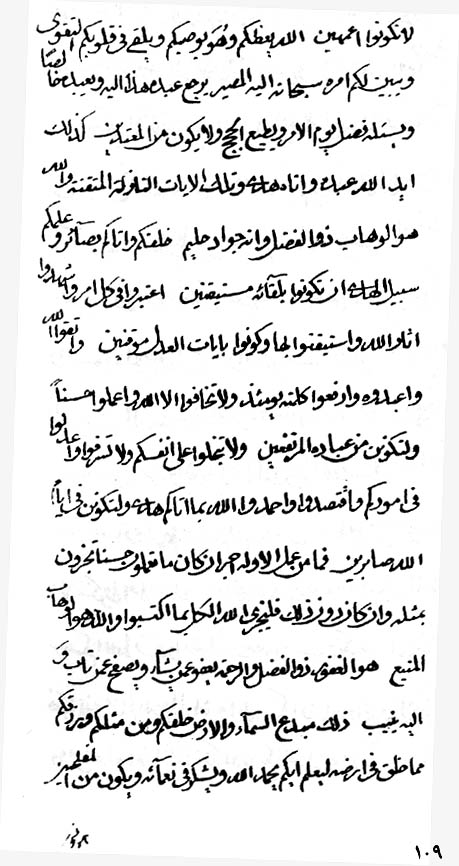 لا تكونوا اعمهين الله يعظكم وهو يوصيكم ويلقي في قلوبكم التقوى
ويبين لكم امره سبحانه اليه المصير يرجع عباده هذا اليه ويعبده خالصا
ويسئله فضل يوم الامر ويطيع الحجج ولا يكون من المعتدين كذلك
ايد الله عبده واتاه هداه وتلك الايات النازلة المتقنة والله
هو الوهاب ذو الفضل وانه جواد حليم خلقكم واتاكم بصائر و عليكم
سبيل الهدى ان تكونوا بلقائه مستيقنين اعتبروا في كل امر واشهدوا
اثار الله واستيقنوا بها وكونوا بايات العدل موقنين واتقوا الله
واعبدوه وارفعوا كلمته يومئذ ولا تخافوا الا الله واعملوا حسناً
ولتكونن من عباده المرتفعين ولا تبخلوا على انفسكم ولا تسرفوا واعدلوا
في اموركم واقتصدوا واحمدوا الله بما اتاكم هداه ولتكونن في ايام
الله صابرين فما من عمل الا وله اجر ان كان ما تعملون حسنا تجزون
بمثله وان كان دون ذلك فليجزي الله الكل بما اكتسبوا والله هو الوهاب
المنيع هو الغفور ذو الفضل والرحمة يعفو عمن يشاء ويصفح عمن تاب و
اليه ينيب ذلك مبدع السماء والارض خلقكم ومن مثلكم ويرزقكم
مما خلق في ارضه ليعلم ايكم يحمد الله ويشكر في نعمائه ويكون من المفلحين
١٠٩